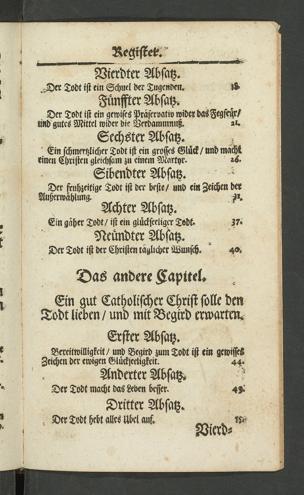 Register.
Vierdter Absatz.
Der Todt ist ein Schuel der Tugenden. 18.
Fünffter Absatz.
Der Todt ist ein gewises Präservativ wider das Fegfeür/
und gutes Mittel wider die Verdammnuß. 21.
Sechster Absatz.
Ein schmertzlicher Todt ist ein grosses Glück / und macht
einen Christen gleichsam zu einem Martyr. 26.
Sibendter Absatz.
Der fruhzeitige Todt ist der beste / und ein Zeichen der
Außerwählung. 31.
Achter Absatz.
Ein gäher Todt / ist ein glückseeliger Todt. 37.
Neündter Absatz.
Der Todt ist der Christen täglicher Wunsch. 40.
Das andere Capitel.
Ein gut Catholischer Christ solle den
Todt lieben / und mit Begird erwarten.
Erster Absatz.
Bereitwilligkeit / und Begird zum Todt ist ein gewisses
Zeichen der ewigen Glückseeligkeit. 44.
Anderter Absatz.
Der Todt macht das Leben besser. 49.
Dritter Absatz.
Der Todt hebt alles Übel auf.
Vierd-